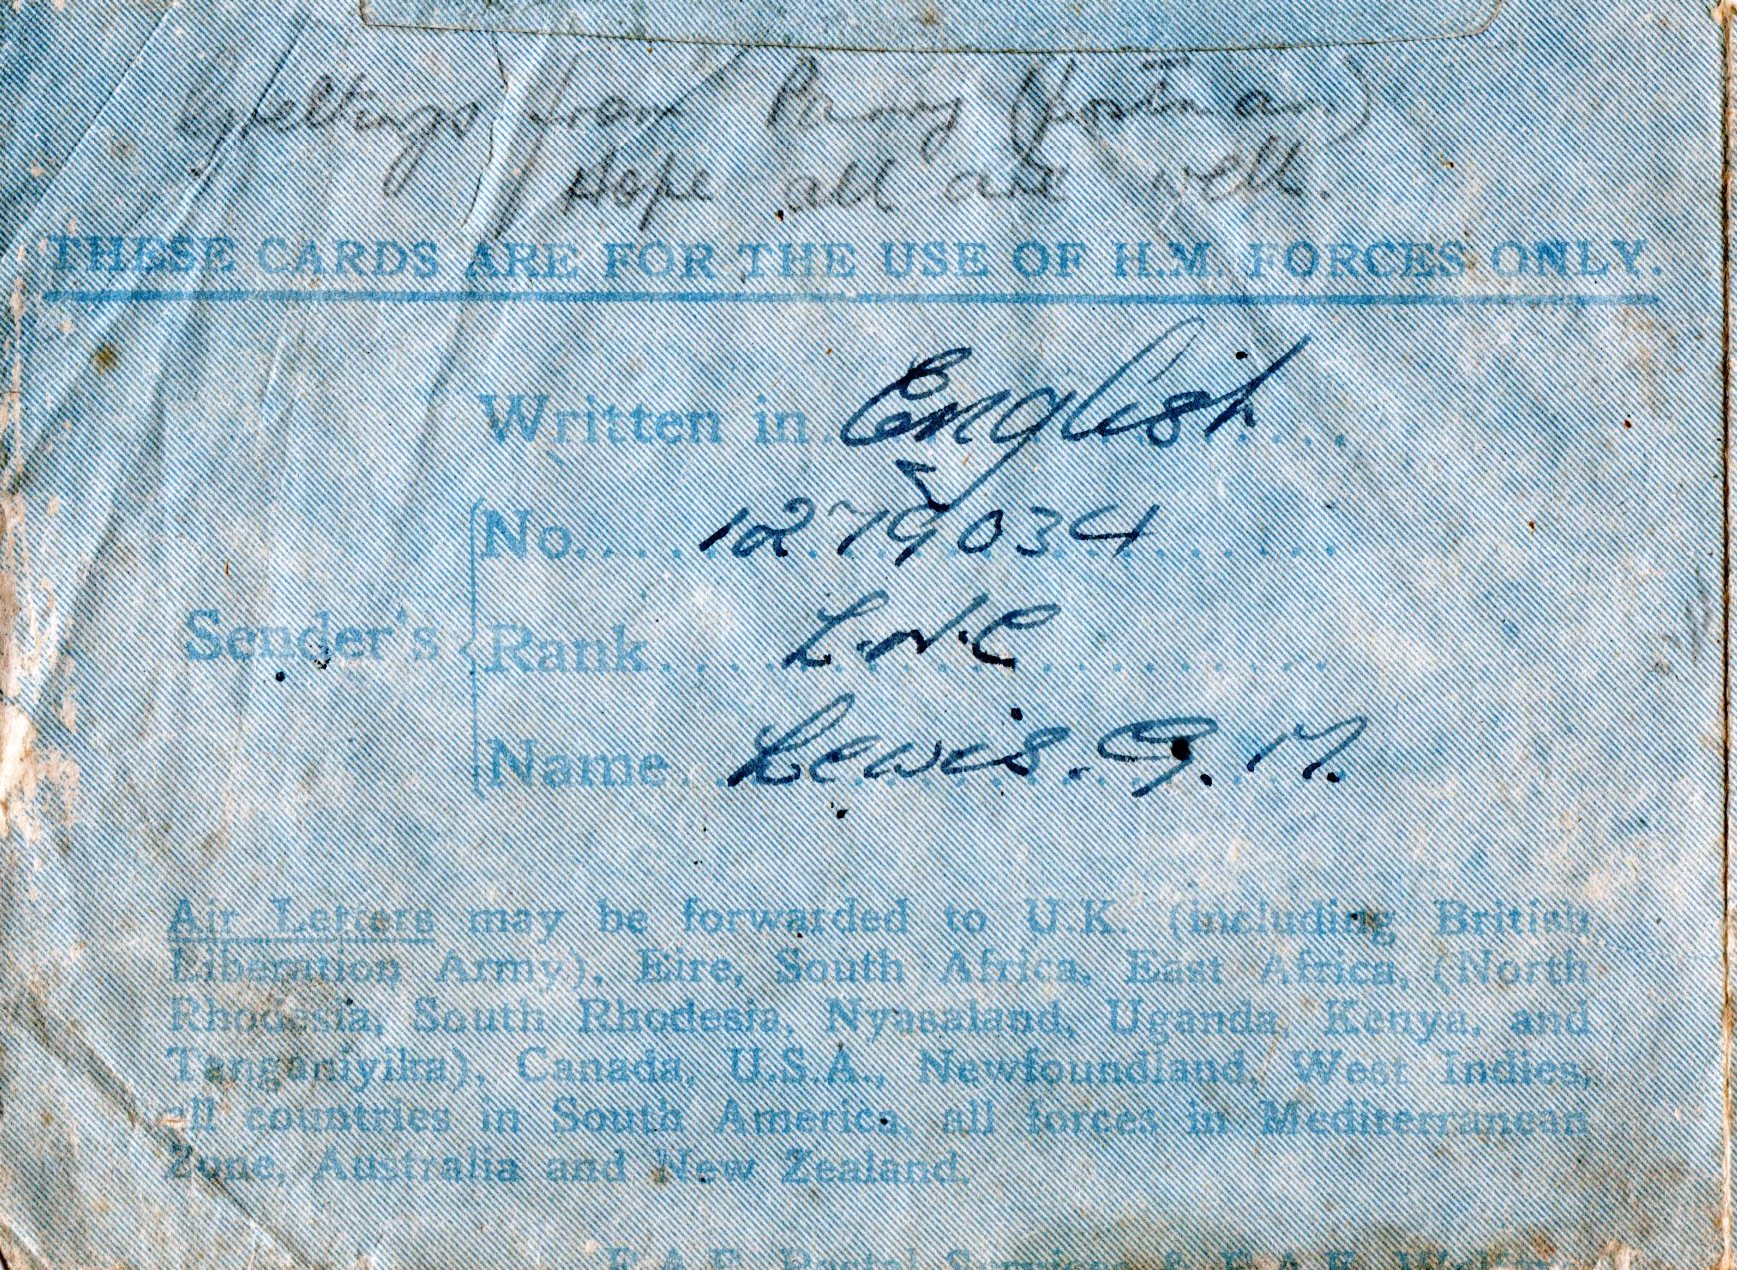 Greetings from Percy (Postman)
Hope all are well.
THESE CARDS ARE FOR THE USE OF H.M. FORCES ONLY.
Written in English
No. 1279034
Sender's
Rank L.A.C
Name Lewis. G. M.
Air Letters may be forwarded to U.K. (including British
Liberation Army), Eire, South Africa, East Africa, (North
Rhodesia, South Rhodesia, Nyasaland, Uganda, Kenya, and
Tanganiyika), Canada, U.S.A., Newfoundland, West Indies,
all countries in South America, all forces in Mediterranean
Zone, Australia and New Zealand.
R.A.F. Postal Services & R.A.F.